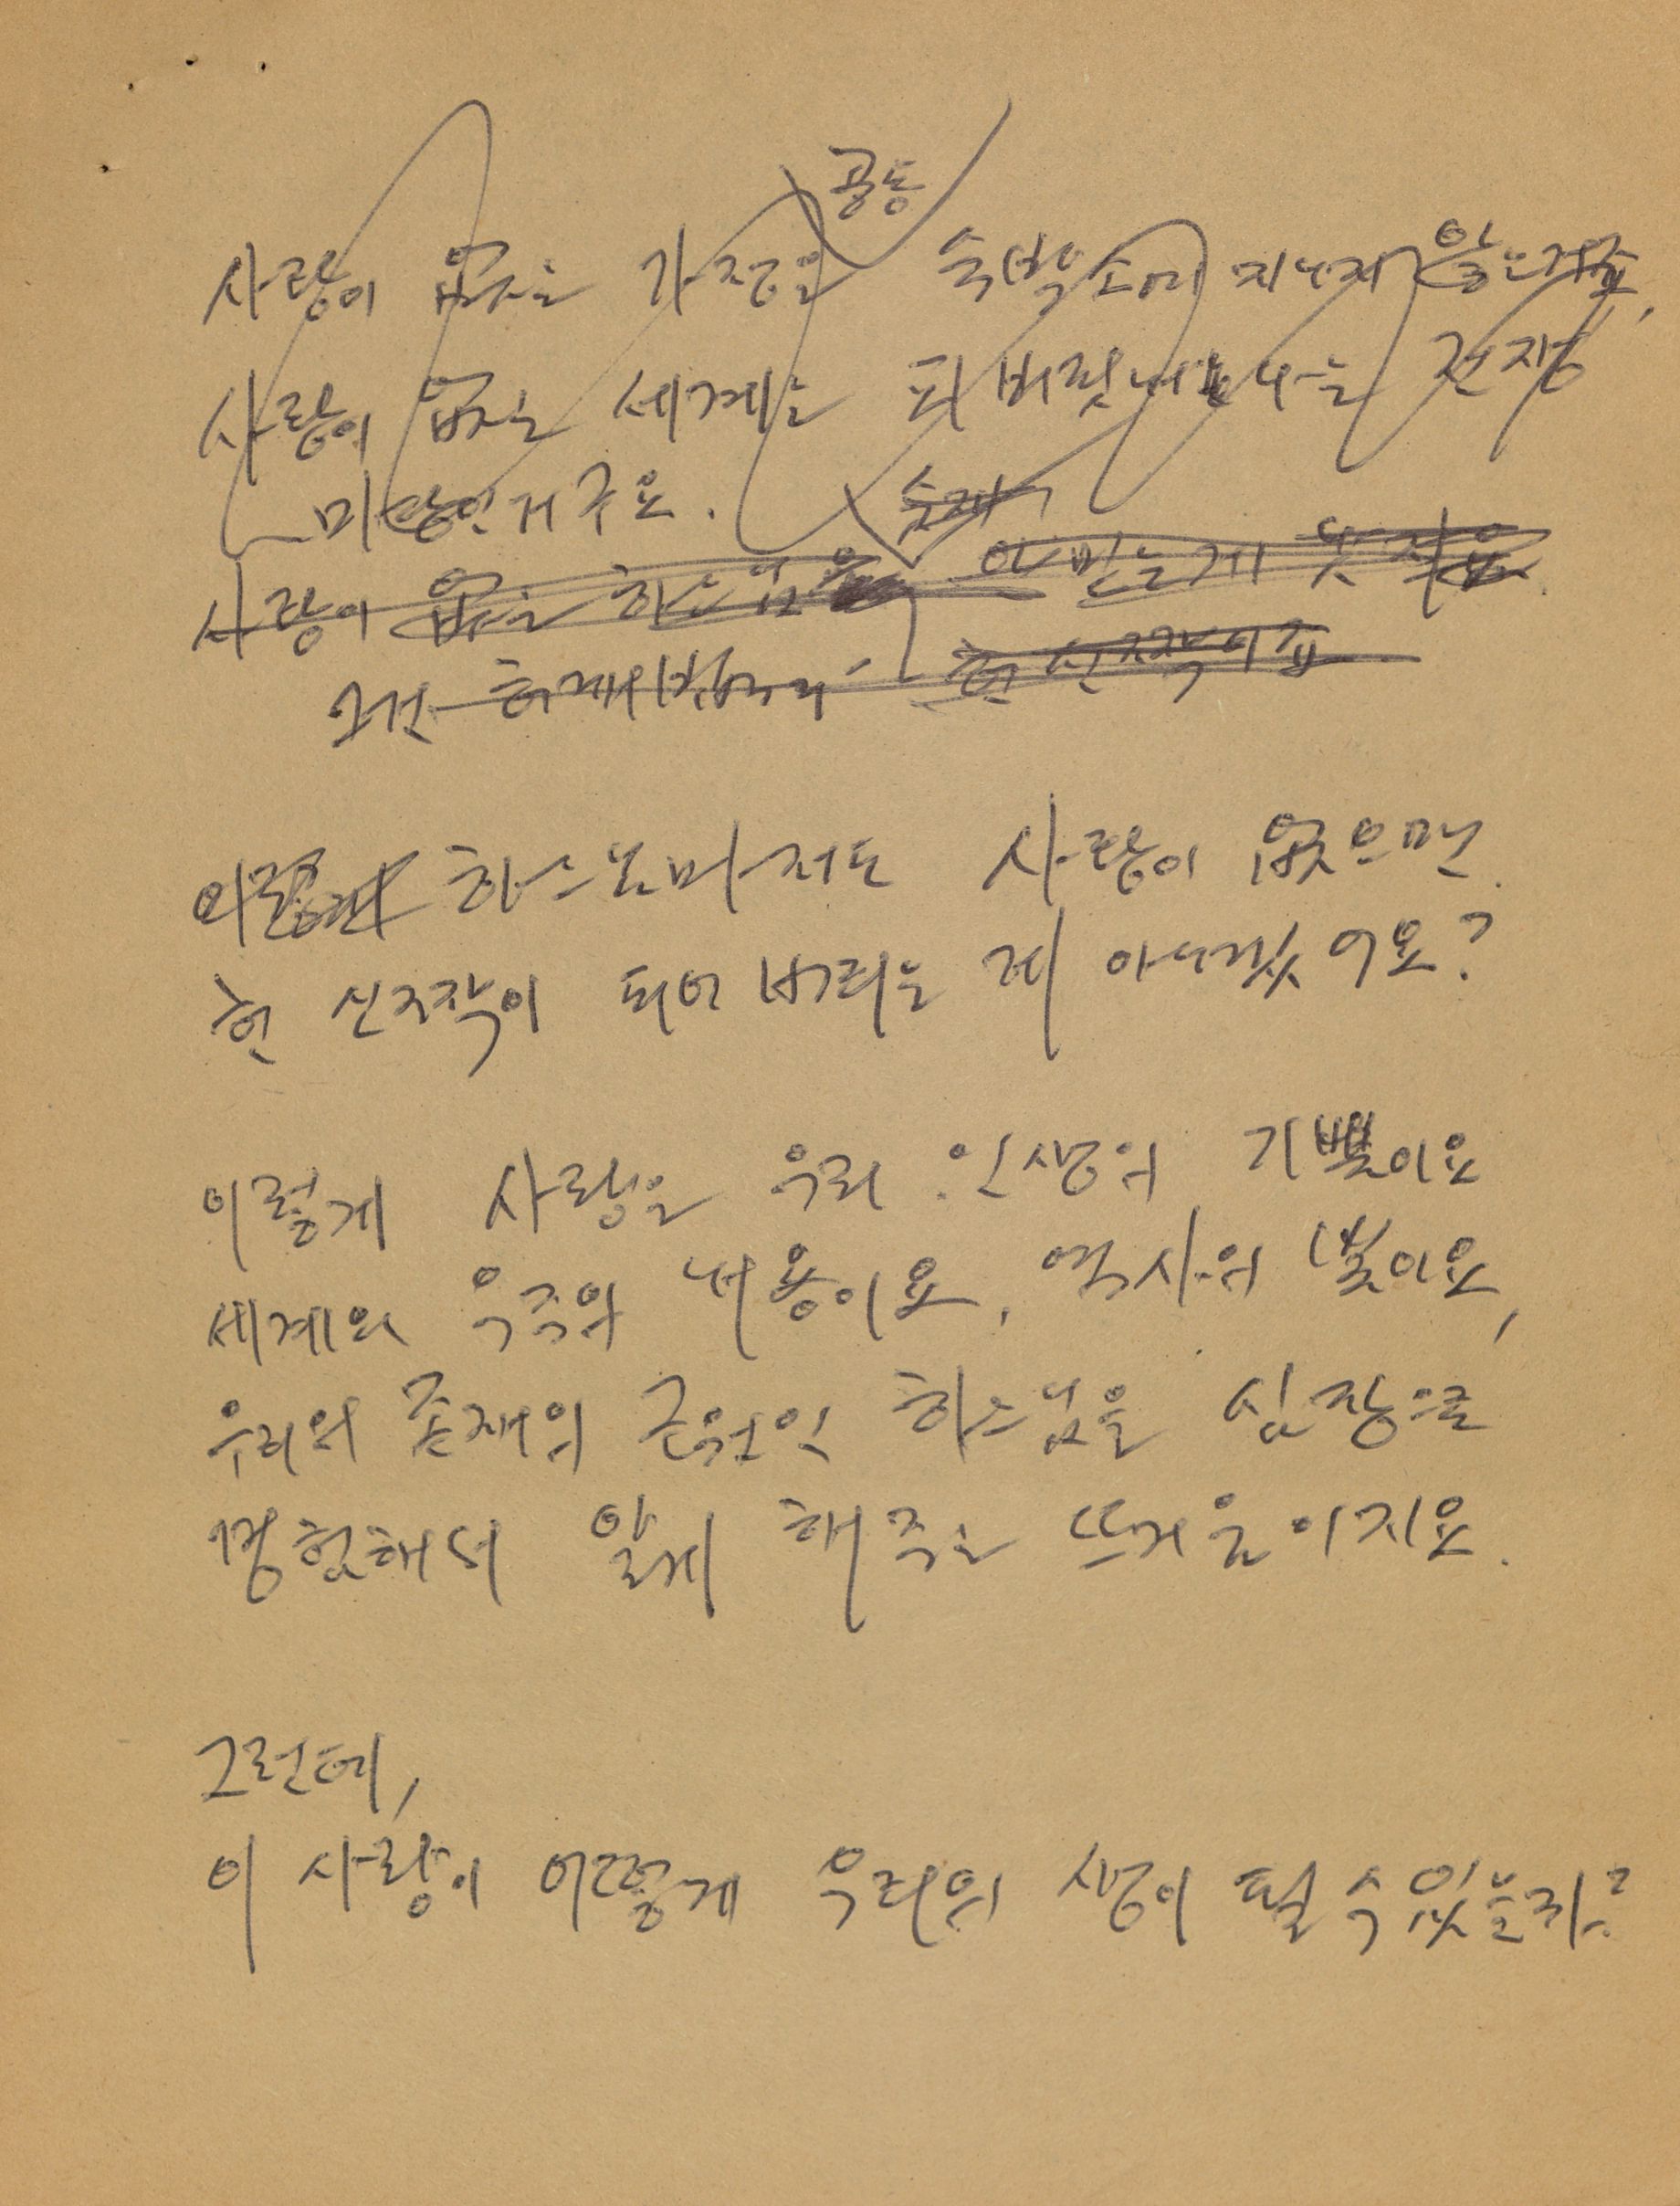 공동
사랑이 없는 가정은 숙박소에 지나지 않는거죠,
사랑이 없는 세계는 피 비릿내 나는 전장
마당인거구요.
사랑이 없는 하느님을 안 믿는게 낫지요.
그건 헌 신짝이죠
하느님마저도 사랑이 없으면
헌 신짝이 되어 버리는 게 아니겠어요?
이렇게 사랑은 우리 인생의 기쁨이요
세계와 우주의 내용이요, 역사의 빛이요,
우리의 존재의 근원인 하느님을 심장으로
경험해서 알게 해 주는 뜨거움이지요.
그런데,
이 사랑이 어떻게 우리의 생이 될 수 있는지?